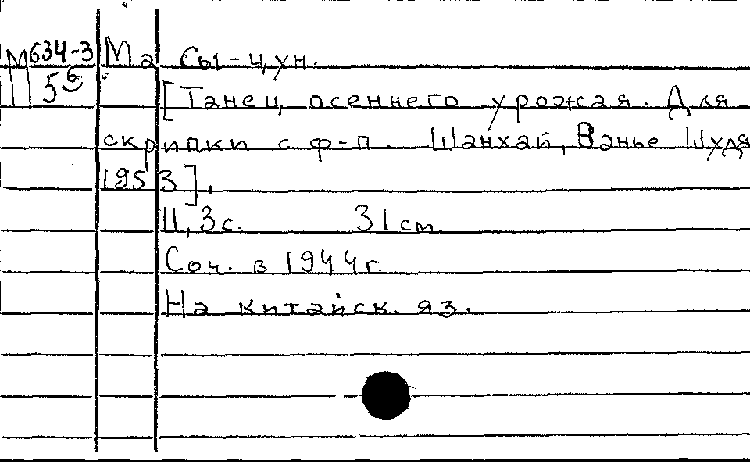 М 634-3 Ма Сы-цун.
5⁶ [Танец осеннего урожая. Для
скрипки с ф-п. Шанхай, Ванье Шудя
1953].
11, 3 с. 31 см
Соч. в 1944 г.
На китайск. яз.